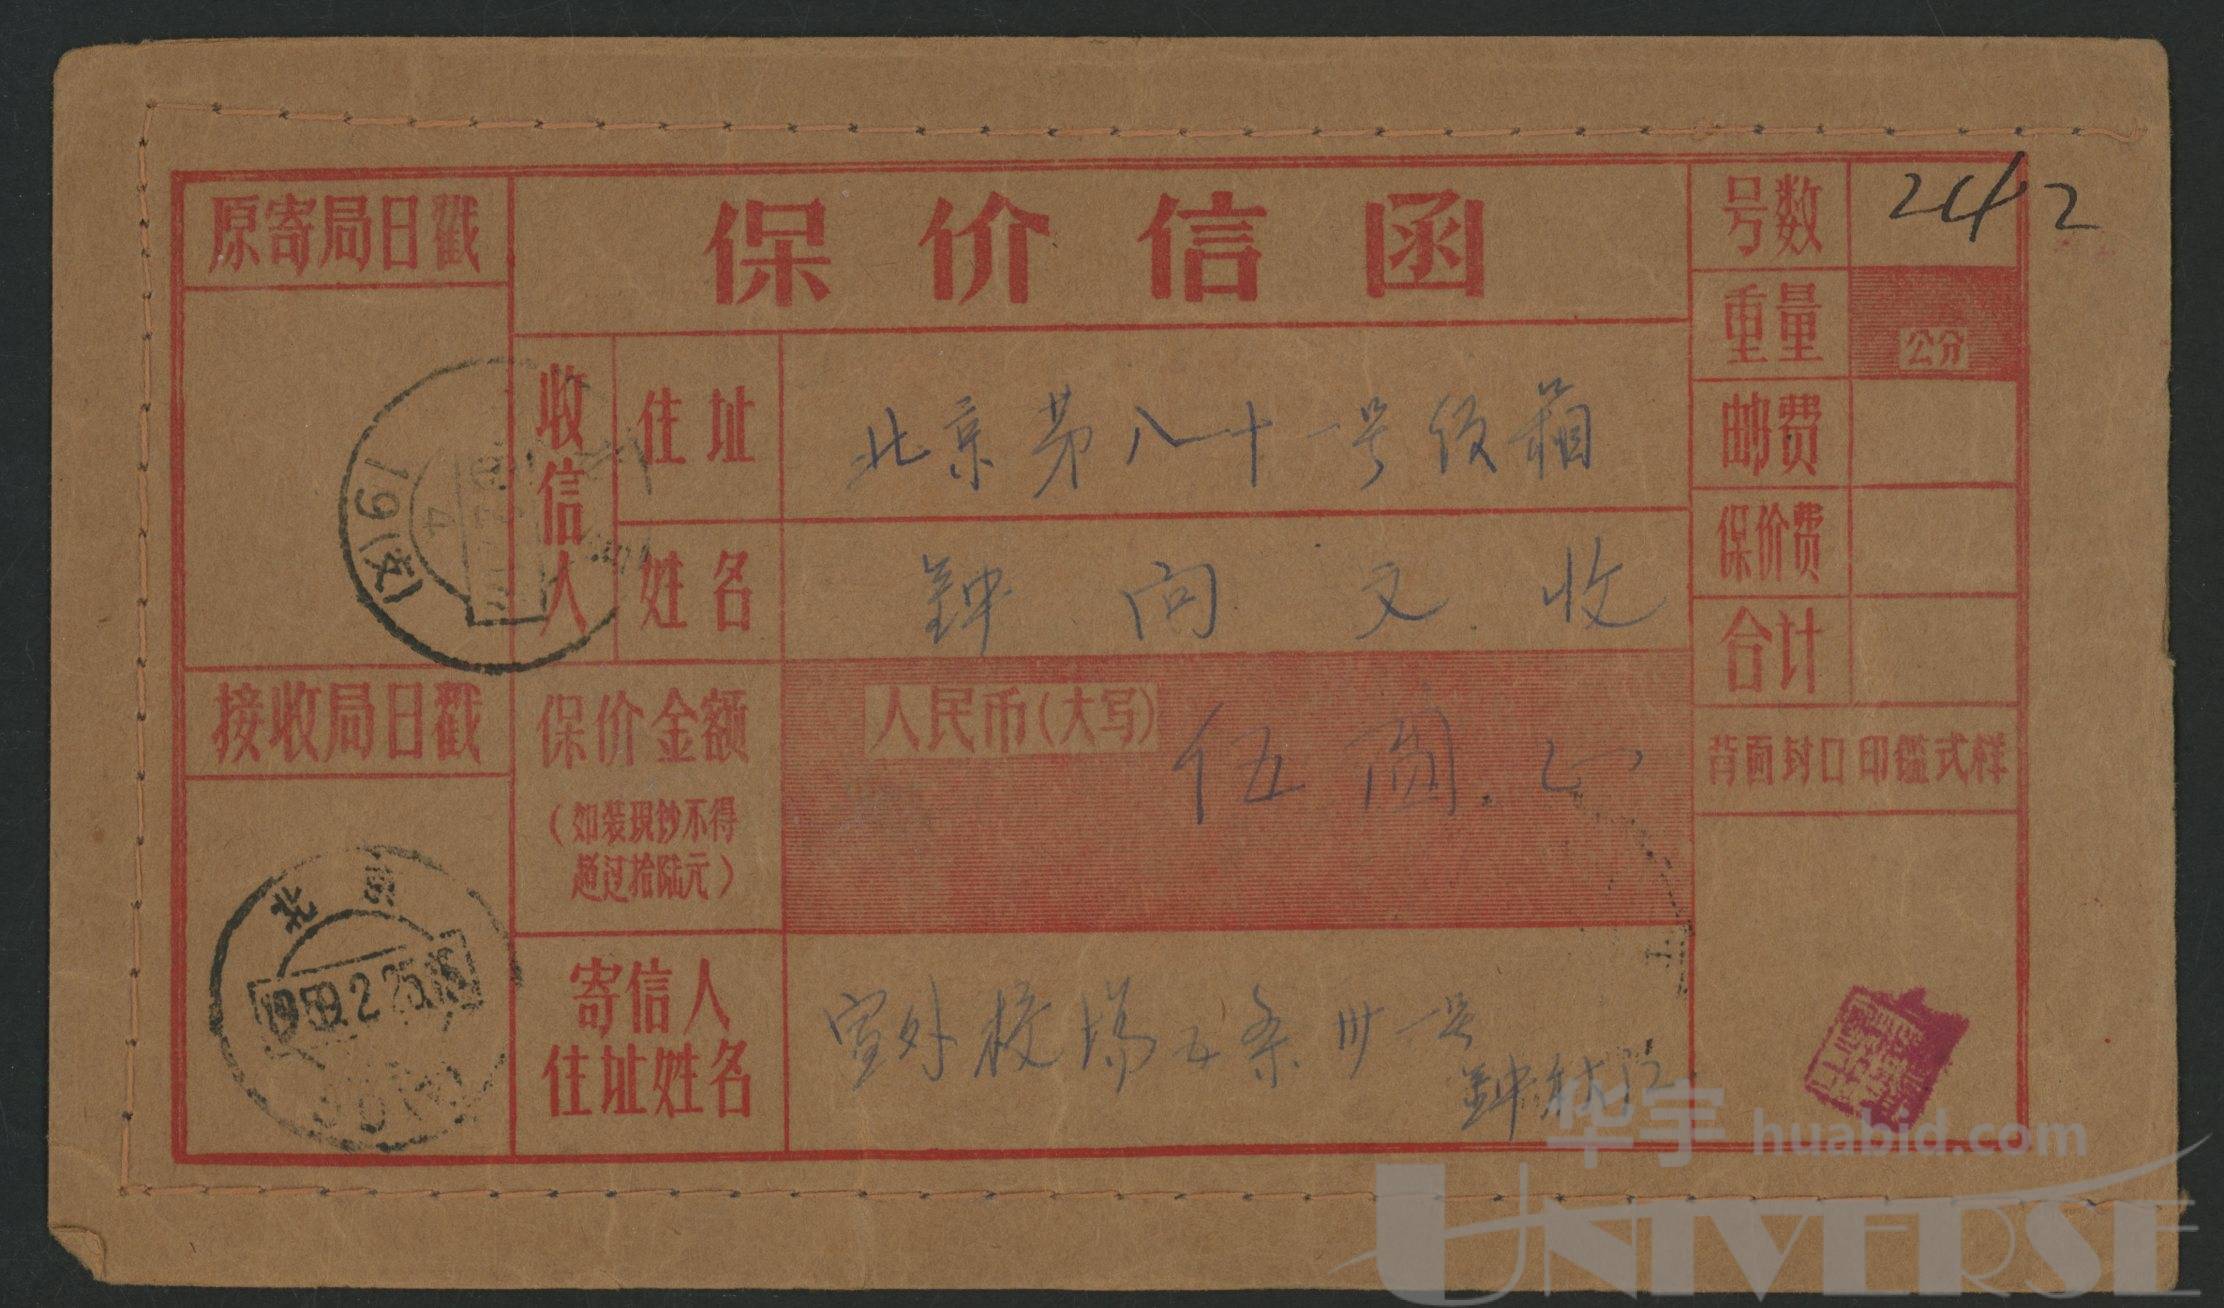 原寄局日戳
保价信函
号数
242
重量
公分
收信人
住址
北京第八十一号信箱
邮费
保价费
19(支)
4
姓名
钟向文 收
合计
接收局日戳
保价金额
(如装现钞不得
超过拾陆元)
人民币(大写)
伍圆正
背面封口印鑑式样
北
1959.2.25.
寄信人
住址姓名
校场五条卅一号
钟
华宇 huabid.com
UNIVERSE